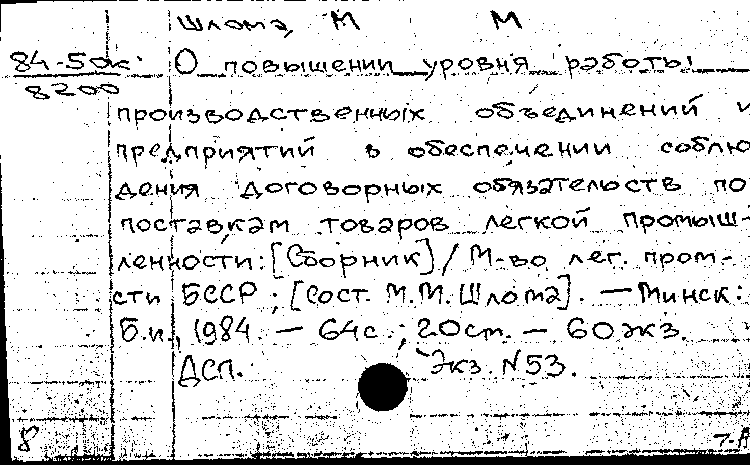 Шлома, М М
84-50к. О повышении уровня работы
8200
производственных объединений и
предприятий в обеспечении соблю
дения договорных обязательств по
поставкам товаров легкой промыш-
ленности: [Сборник] / М-во лег. пром-
сти БССР ; [Сост. М.М. Шлома]. — Минск:
Б.и., 1984. — 64с. ; 20см. — 60 экз.
ДСП. Экз. N53.
8